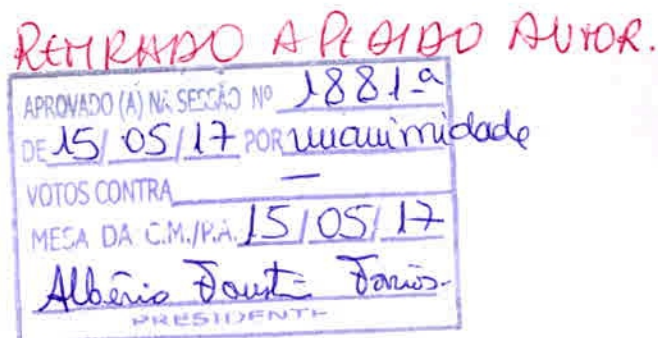 RETIRADO A PEDIDO AUTOR.
APROVADO (A) NA SESSÃO Nº 1881-a
DE 15/05/17 POR unanimidade
VOTOS CONTRA —
MESA DA C.M./P.A. 15/05/17
Albério Faustino Farias
PRESIDENTE